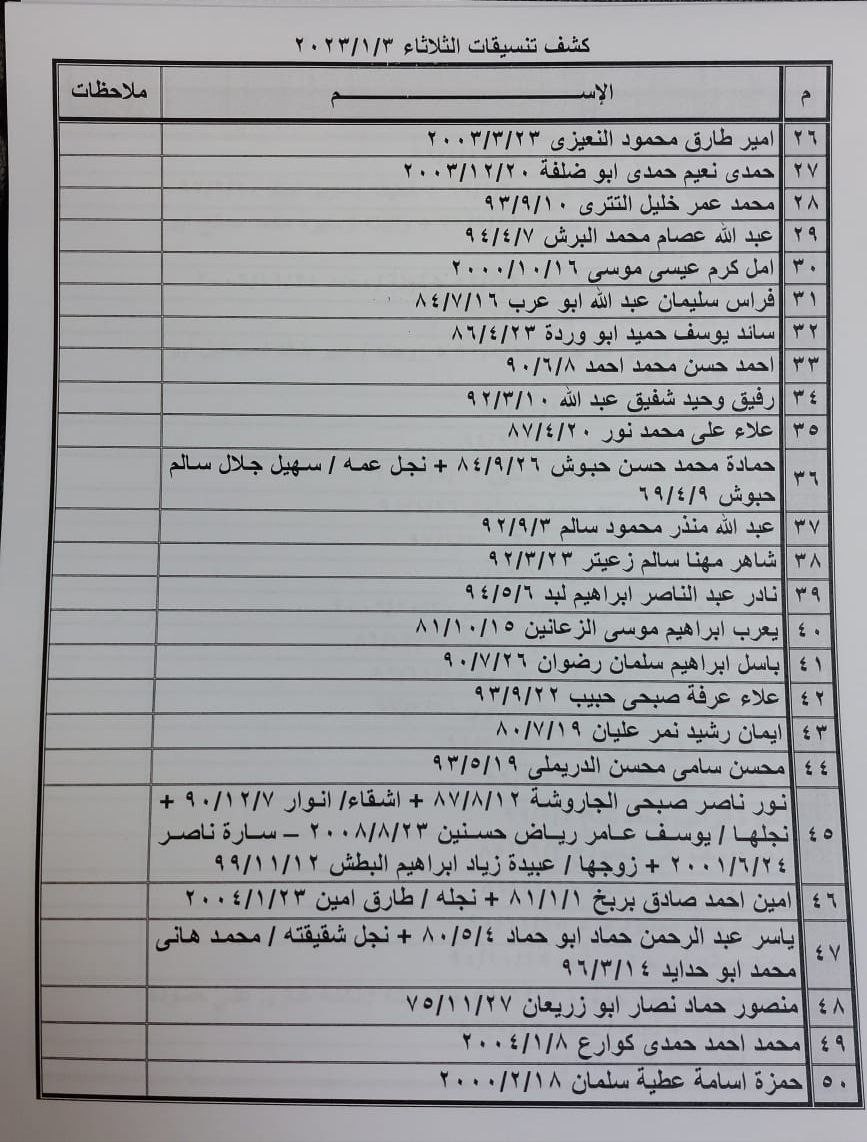 كشف تنسيقات الثلاثاء ٢٠٢٣/١/٣
م الإســـــــم ملاحظات
٢٦ امير طارق محمود النعيزى ٢٠٠٣/٣/٢٣
٢٧ حمدى نعيم حمدى ابو ضلفة ٢٠٠٣/١٢/٢٠
٢٨ محمد عمر خليل التترى ٩٣/٩/١٠
٢٩ عبد الله عصام محمد البرش ٩٤/٤/٧
٣٠ امل كرم عيسى موسى ٢٠٠٠/١٠/١٦
٣١ فراس سليمان عبد الله ابو عرب ٨٤/٧/١٦
٣٢ ساند يوسف حميد ابو وردة ٨٦/٤/٢٣
٣٣ احمد حسن محمد احمد ٩٠/٦/٨
٣٤ رفيق وحيد شفيق عبد الله ٩٢/٣/١٠
٣٥ علاء على محمد نور ٨٧/٤/٢٠
٣٦ حمادة محمد حسن حبوش ٨٤/٩/٢٦ + نجل عمه / سهيل جلال سالم
حبوش ٦٩/٤/٩
٣٧ عبد الله منذر محمود سالم ٩٢/٩/٣
٣٨ شاهر مهنا سالم زعيتر ٩٢/٣/٢٣
٣٩ نادر عبد الناصر ابراهيم لبد ٩٤/٥/٦
٤٠ يعرب ابراهيم موسى الزعانين ٨١/١٠/١٥
٤١ باسل ابراهيم سلمان رضوان ٩٠/٧/٢٦
٤٢ علاء عرفة صبحى حبيب ٩٣/٩/٢٢
٤٣ ايمان رشيد نمر عليان ٨٠/٧/١٩
٤٤ محسن سامى محسن الدريملى ٩٣/٥/١٩
نور ناصر صبحى الجاروشة ٨٧/٨/١٢ + اشقاء/ انوار ٩٠/١٢/٧ +
٤٥ نجلها / يوسف عامر رياض حسنين ٢٠٠٨/٨/٢٣ – سارة ناصر
٢٠٠١/٦/٢٤ + زوجها / عبيدة زياد ابراهيم البطش ٩٩/١١/١٢
٤٦ امين احمد صادق بربخ ٨١/١/١ + نجله / طارق امين ٢٠٠٤/١/٢٣
٤٧ ياسر عبد الرحمن حماد ابو حماد ٨٠/٥/٤ + نجل شقيقته / محمد هانى
محمد ابو حدايد ٩٦/٣/١٤
٤٨ منصور حماد نصار ابو زريعان ٧٥/١١/٢٧
٤٩ محمد احمد حمدى كوارع ٢٠٠٤/١/٨
٥٠ حمزة اسامة عطية سلمان ٢٠٠٠/٢/١٨